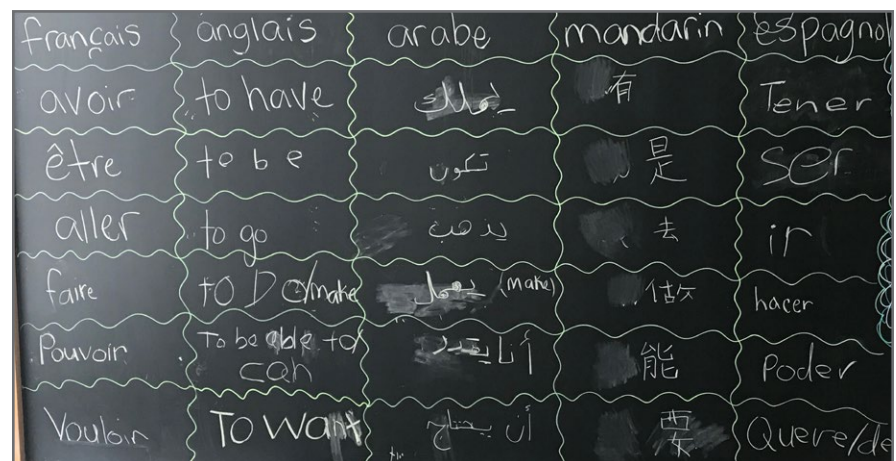 français anglais arabe mandarin espagnol
avoir to have يملك 有 Tener
être to be تكون 是 Ser
aller to go يذهب 去 ir
faire to Do/make يعمل (make) 做 hacer
Pouvoir To be able to/ can 能 Poder
Vouloir To Want أن يحتاج 要 Quere/de